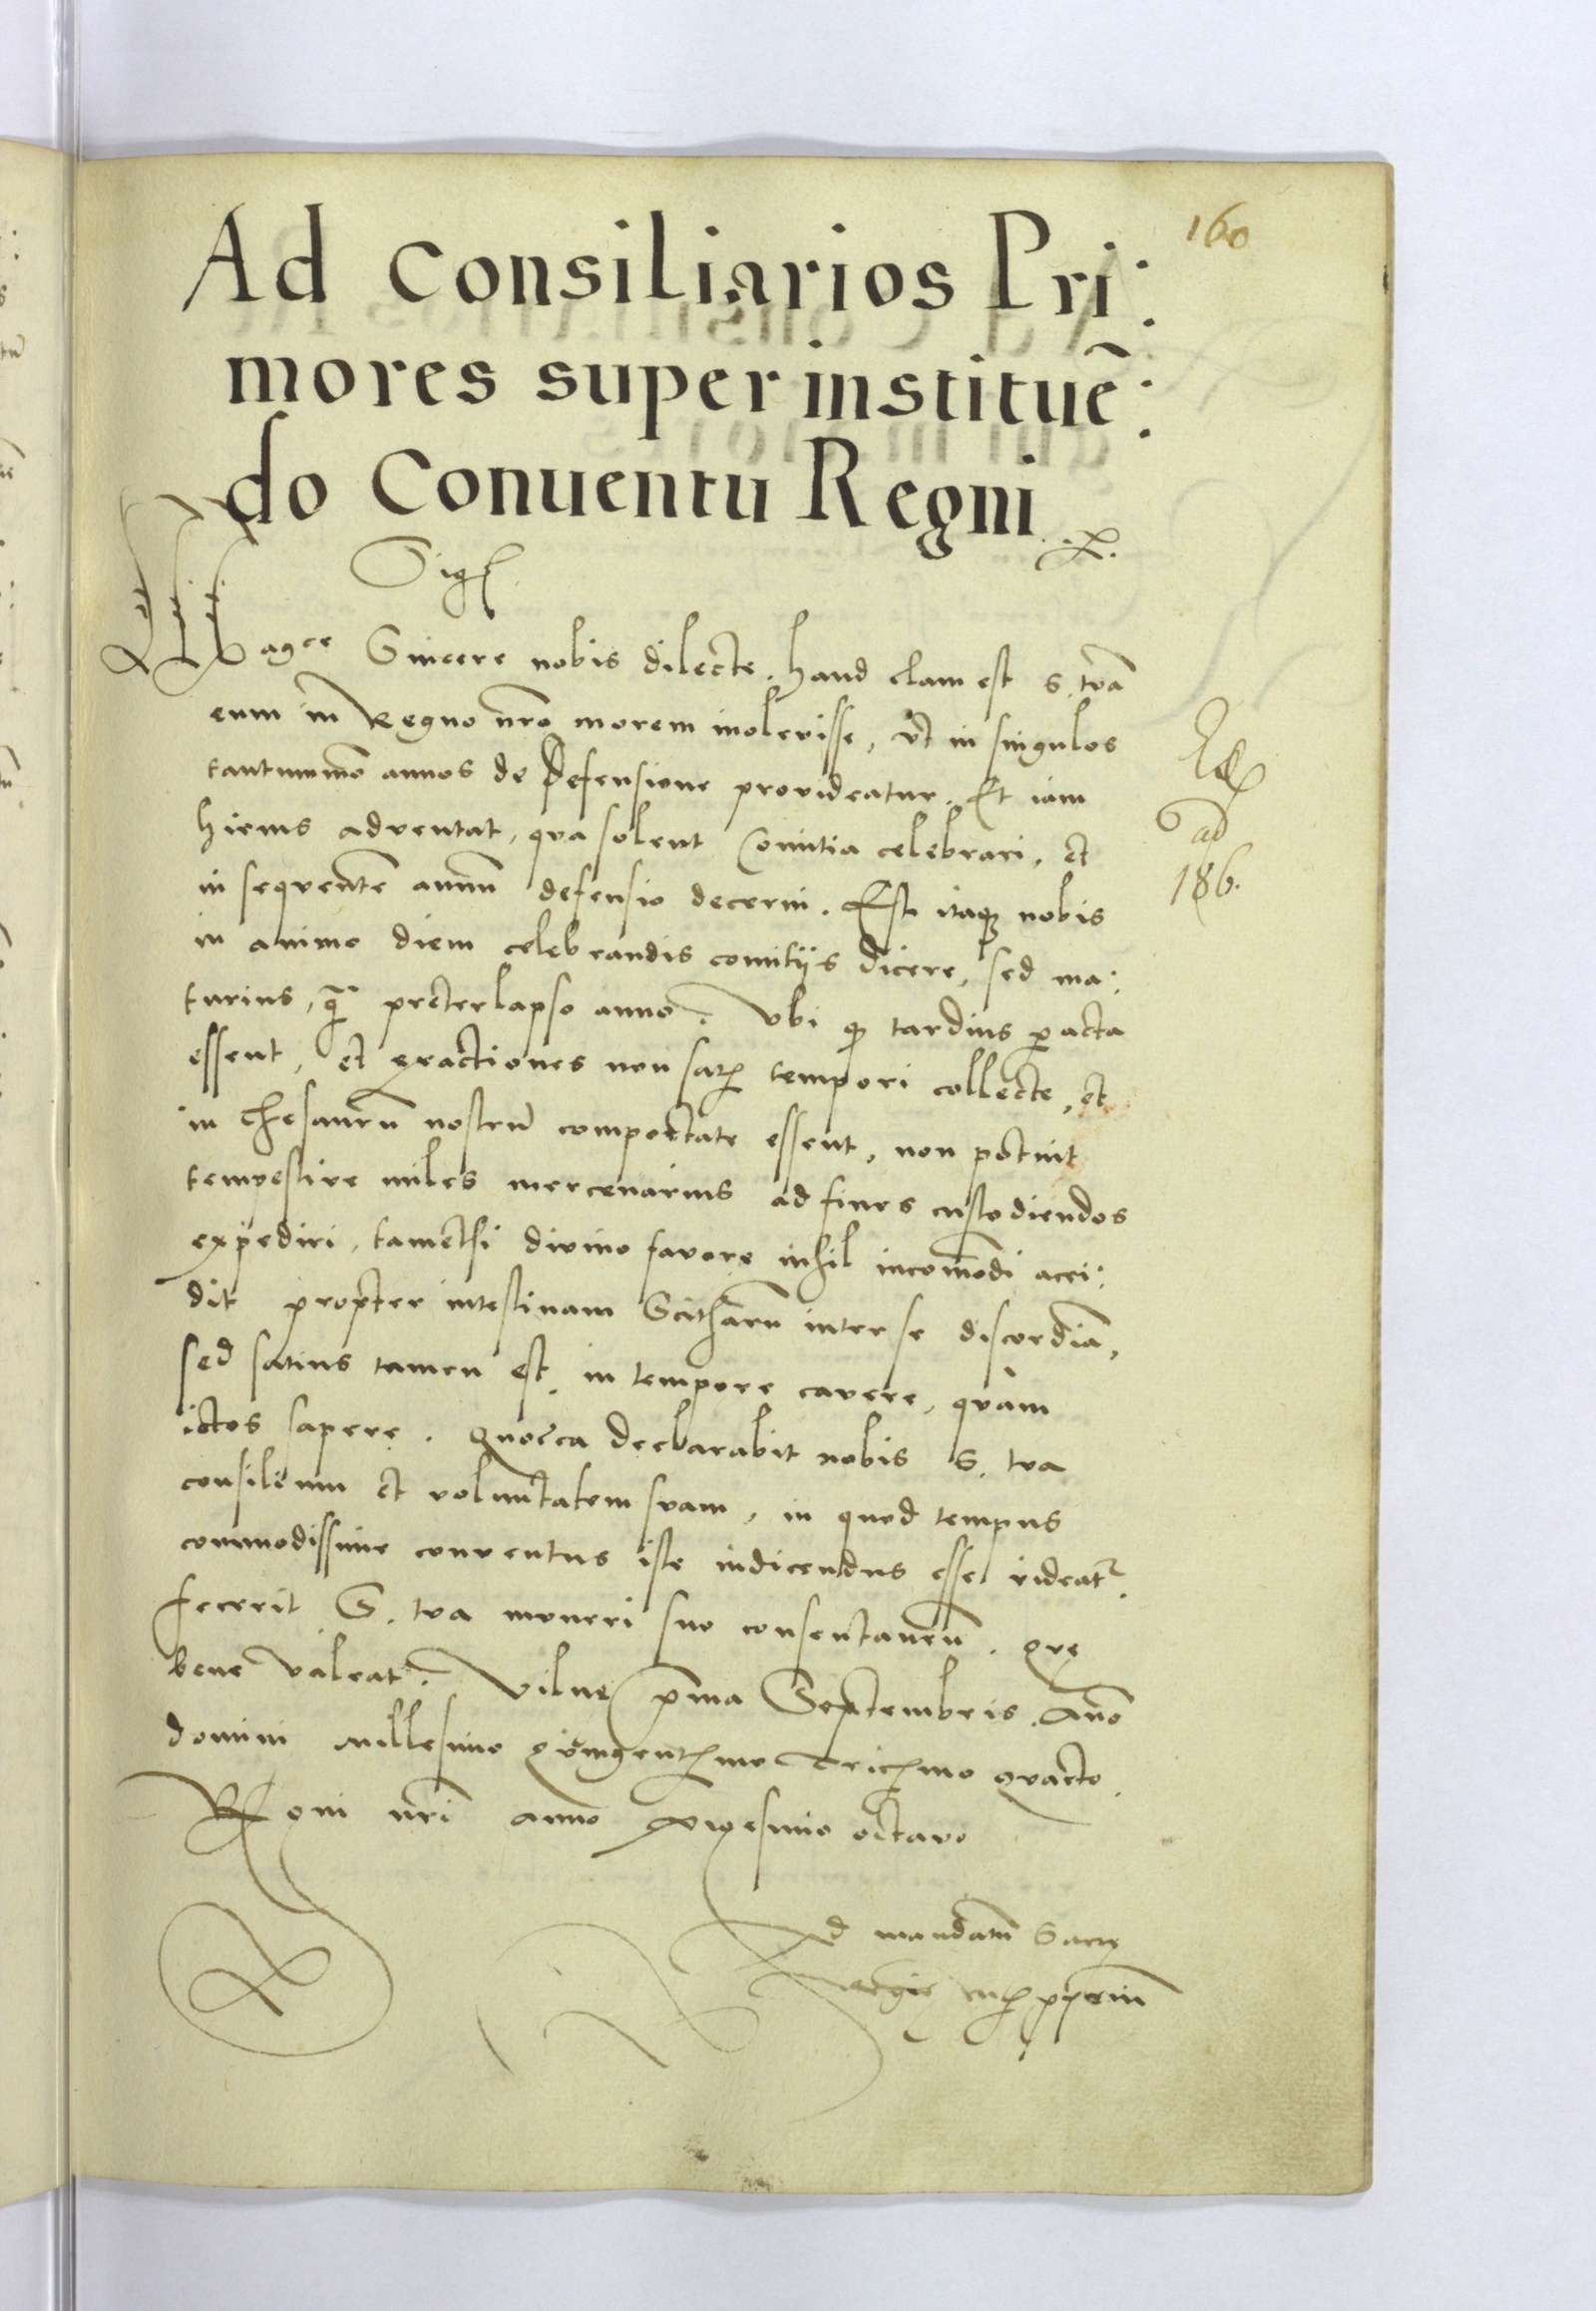 160
Ad Consiliarios Pri:
mores super instituē:
do Conuentu Regni
Sig
Magce Sincere nobis dilecte. haud clam est S. tua
eum in Regno nro morem inolevisse, vt in singulos
tantummo annos de defensione provideatur. Et iam
hiems adventat, qua solent Comitia celebrari, et
in sequentē annū defensio decerni. Est itaq nobis
in animo diem celebrandis comitijs dicere, sed ma:
turius, q̄ preterlapso anno. Vbi q tardius pacta
essent, et exactiones non satis tempori collecte, et
in thesaurū nostrū comportate essent, non potuit
tempestive miles mercenarius ad fines custodiendos
expediri, tametsi divino favore nihil incomodi acci:
dit propter intestinam Scitharū inter se discordiā,
sed satius tamen est, in tempore cavere, quàm
ictos sapere. Quocca declarabit nobis S. tua
consilium et voluntatem suam, in quod tempus
commodissime conventus iste indicendus esse videatr.
fecerit S. tua muneri suo consentaneū. Que
bene valeat. Vilne pma Septembris. Ano
domini millesimo qūingentsmo tricsmo quarto.
Regni nri anno vigesimo octavo
Ad mandatū Sacre
Regie mtis ppriū
ad
186.